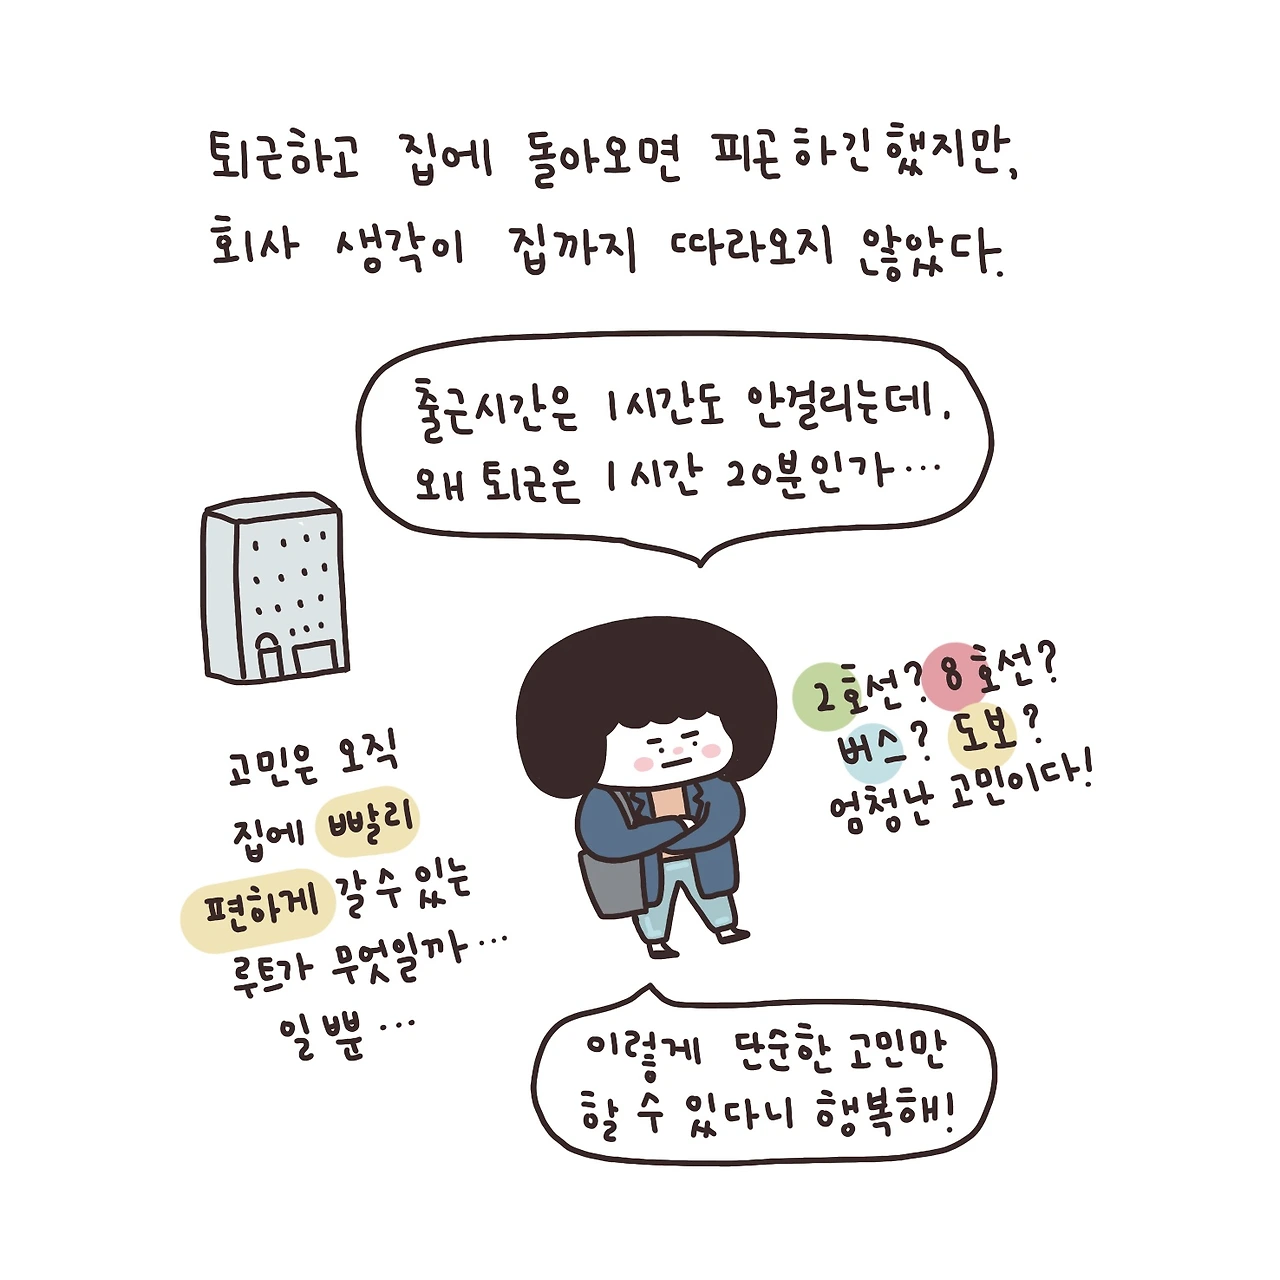 퇴근하고 집에 돌아오면 피곤하긴 했지만,
회사 생각이 집까지 따라오지 않았다.
출근시간은 1시간도 안걸리는데,
왜 퇴근은 1시간 20분인가...
2호선? 8호선?
버스? 도보?
엄청난 고민이다!
고민은 오직
집에 빨리
편하게 갈 수 있는
루트가 무엇일까...
일 뿐...
이렇게 단순한 고민만
할 수 있다니 행복해!